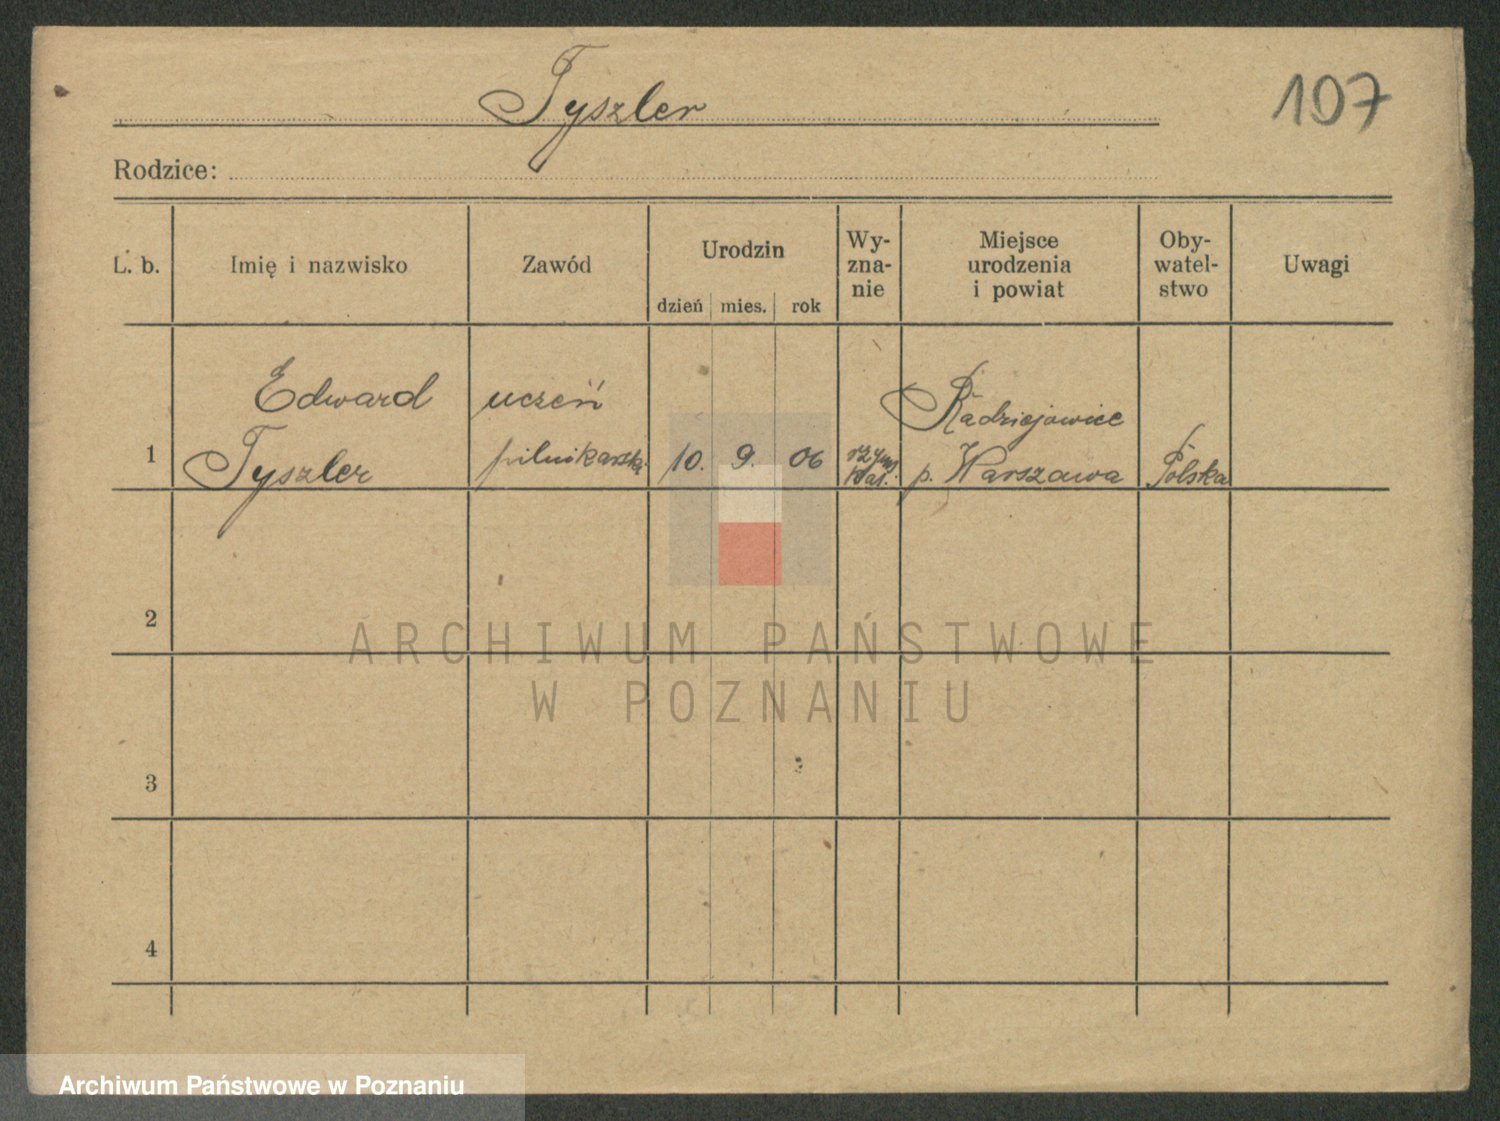 Tyszler
107
Rodzice:
L. b.
Imię i nazwisko
Zawód
Urodzin
dzień
mies.
rok
Wy-
zna-
nie
Miejsce
urodzenia
i powiat
Oby-
watel-
stwo
Uwagi
1
Edward
Tyszler
uczeń
pilnikarski
10.
9.
06
rzyms.
kat.
Radziejowice
p. Warszawa
Polska
2
3
4
ARCHIWUM PAŃSTWOWE
W POZNANIU
Archiwum Państwowe w Poznaniu